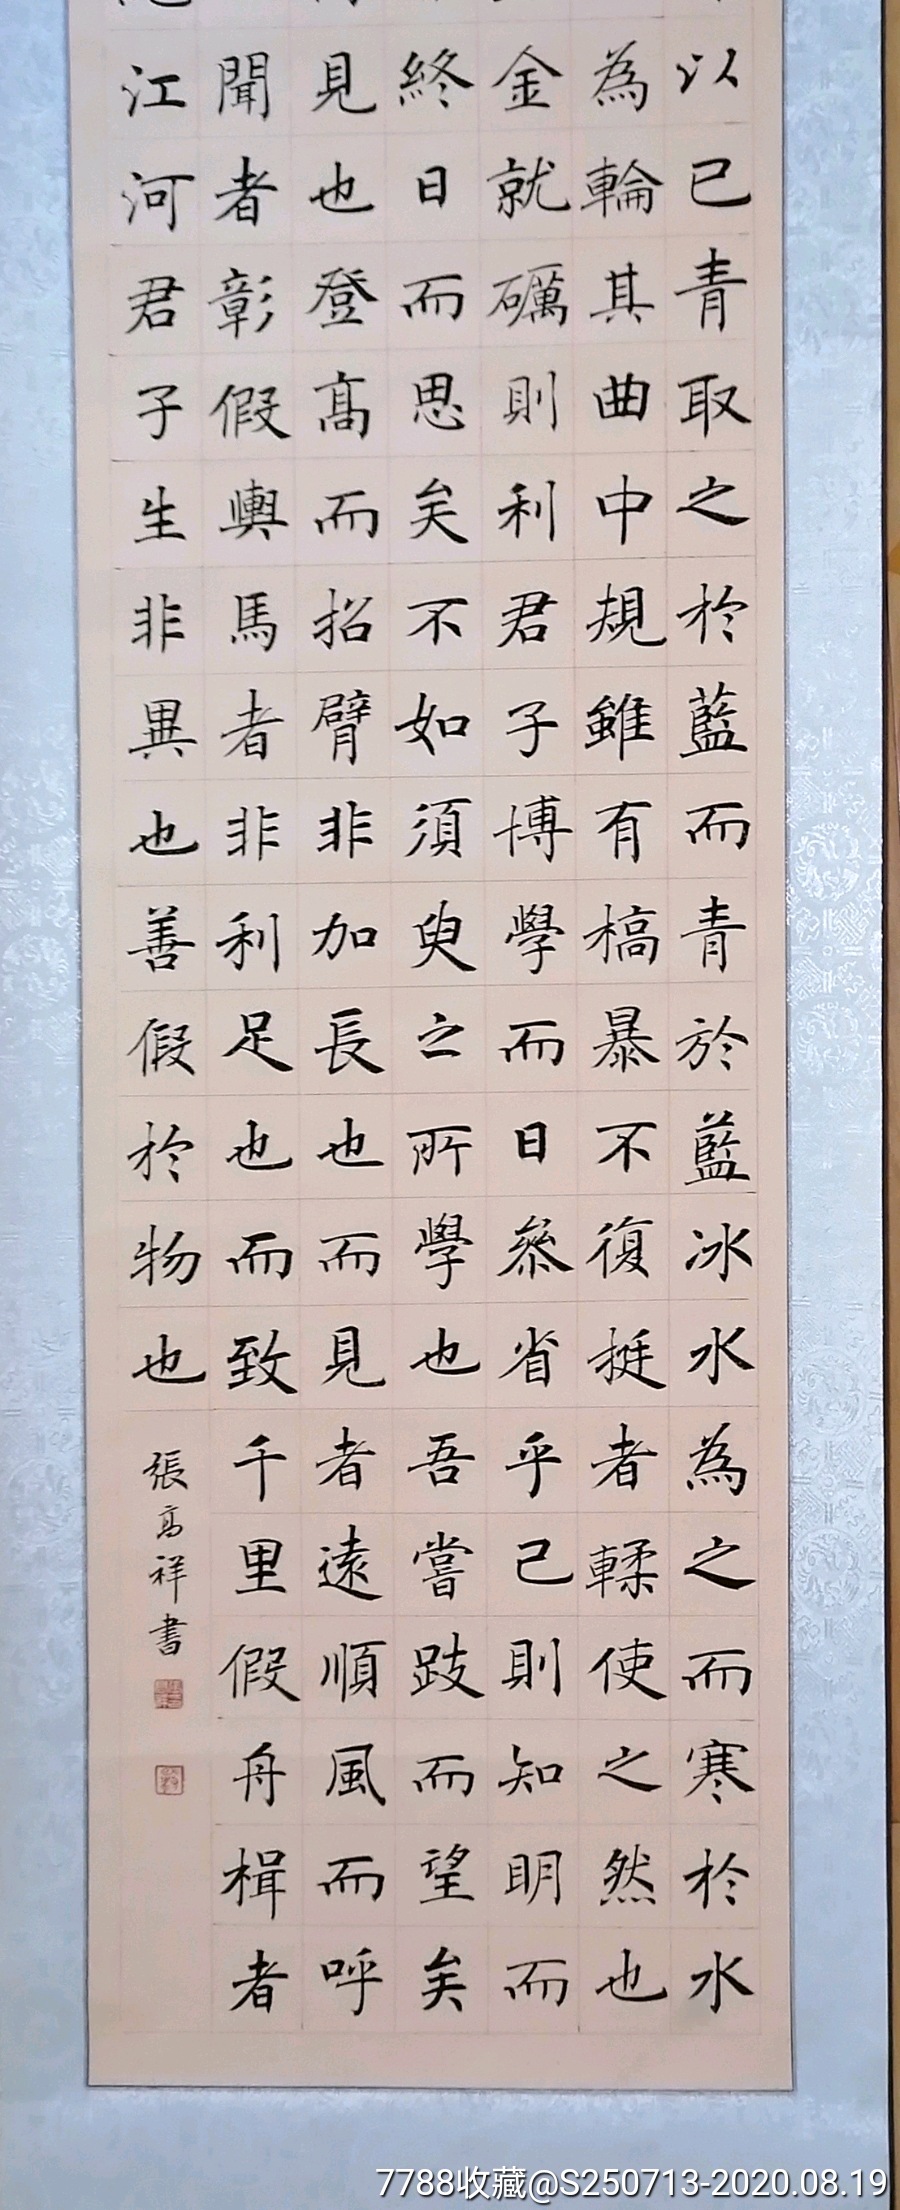 以已青取之於藍而青於藍冰水為之而寒於水
為輪其曲中規雖有槁暴不復挺者輮使之然也
金就礪則利君子博學而日參省乎己則知明而
終日而思矣不如須臾之所學也吾嘗跂而望矣
見也登高而招臂非加長也而見者遠順風而呼
聞者彰假輿馬者非利足也而致千里假舟楫者
江河君子生非異也善假於物也
張高祥書
7788收藏@S250713-2020.08.19